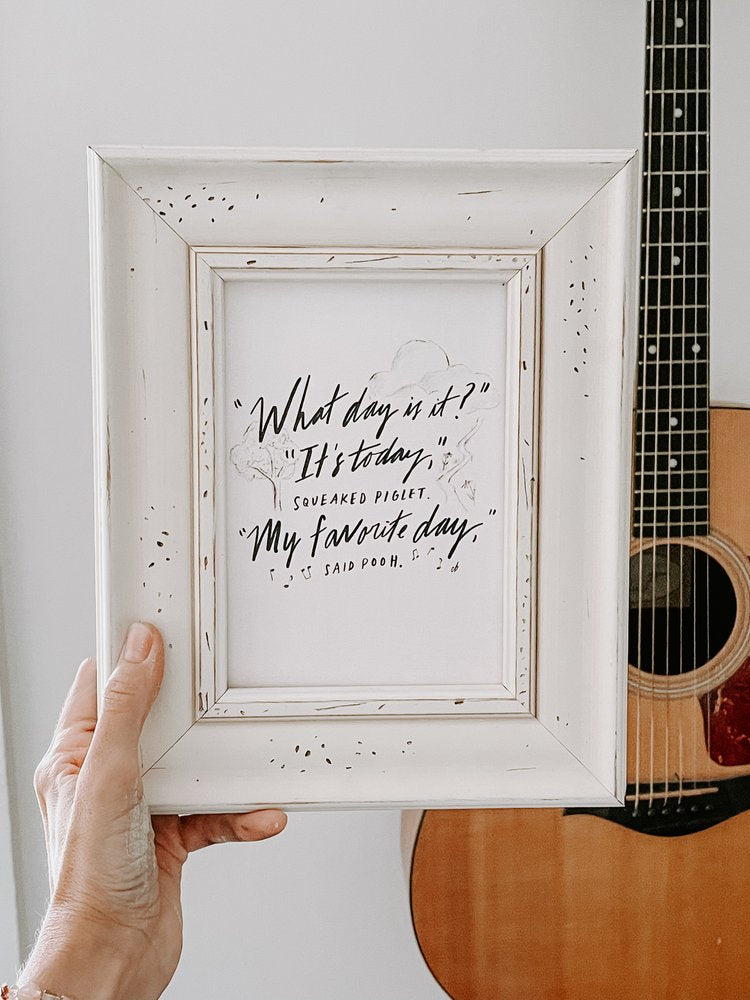 "What day is it?"
"It's today,"
SQUEAKED PIGLET.
"My favorite day,"
SAID POOH.